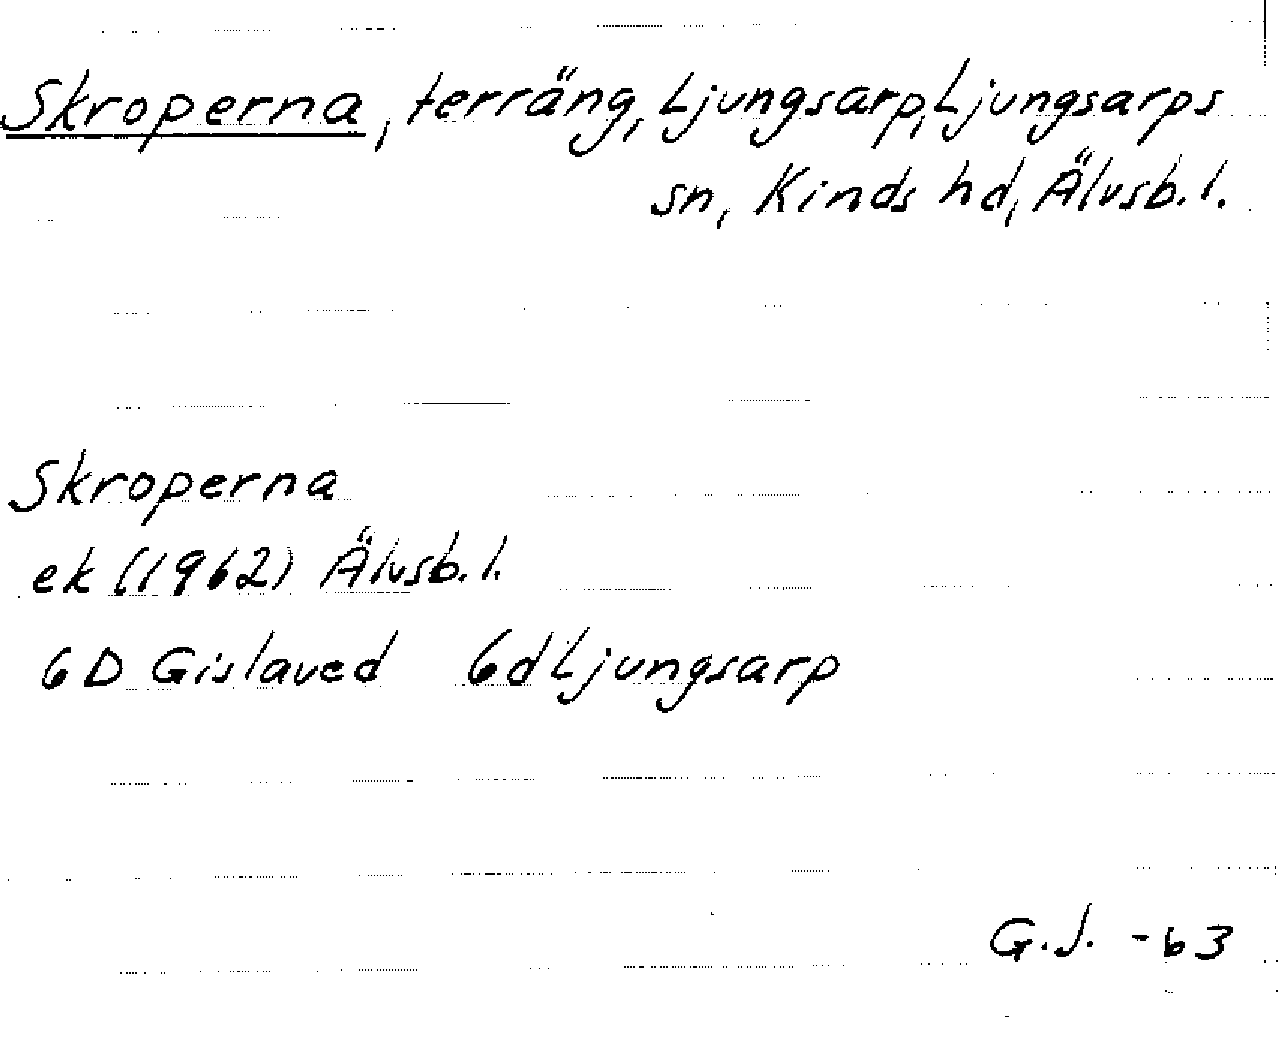 Skroperna, terräng, Ljungsarp, Ljungsarps
sn, Kinds hd, Älvsb. l.
Skroperna
ek (1962) Älvsb. l.
6D Gislaved 6d Ljungsarp
G.J. -63